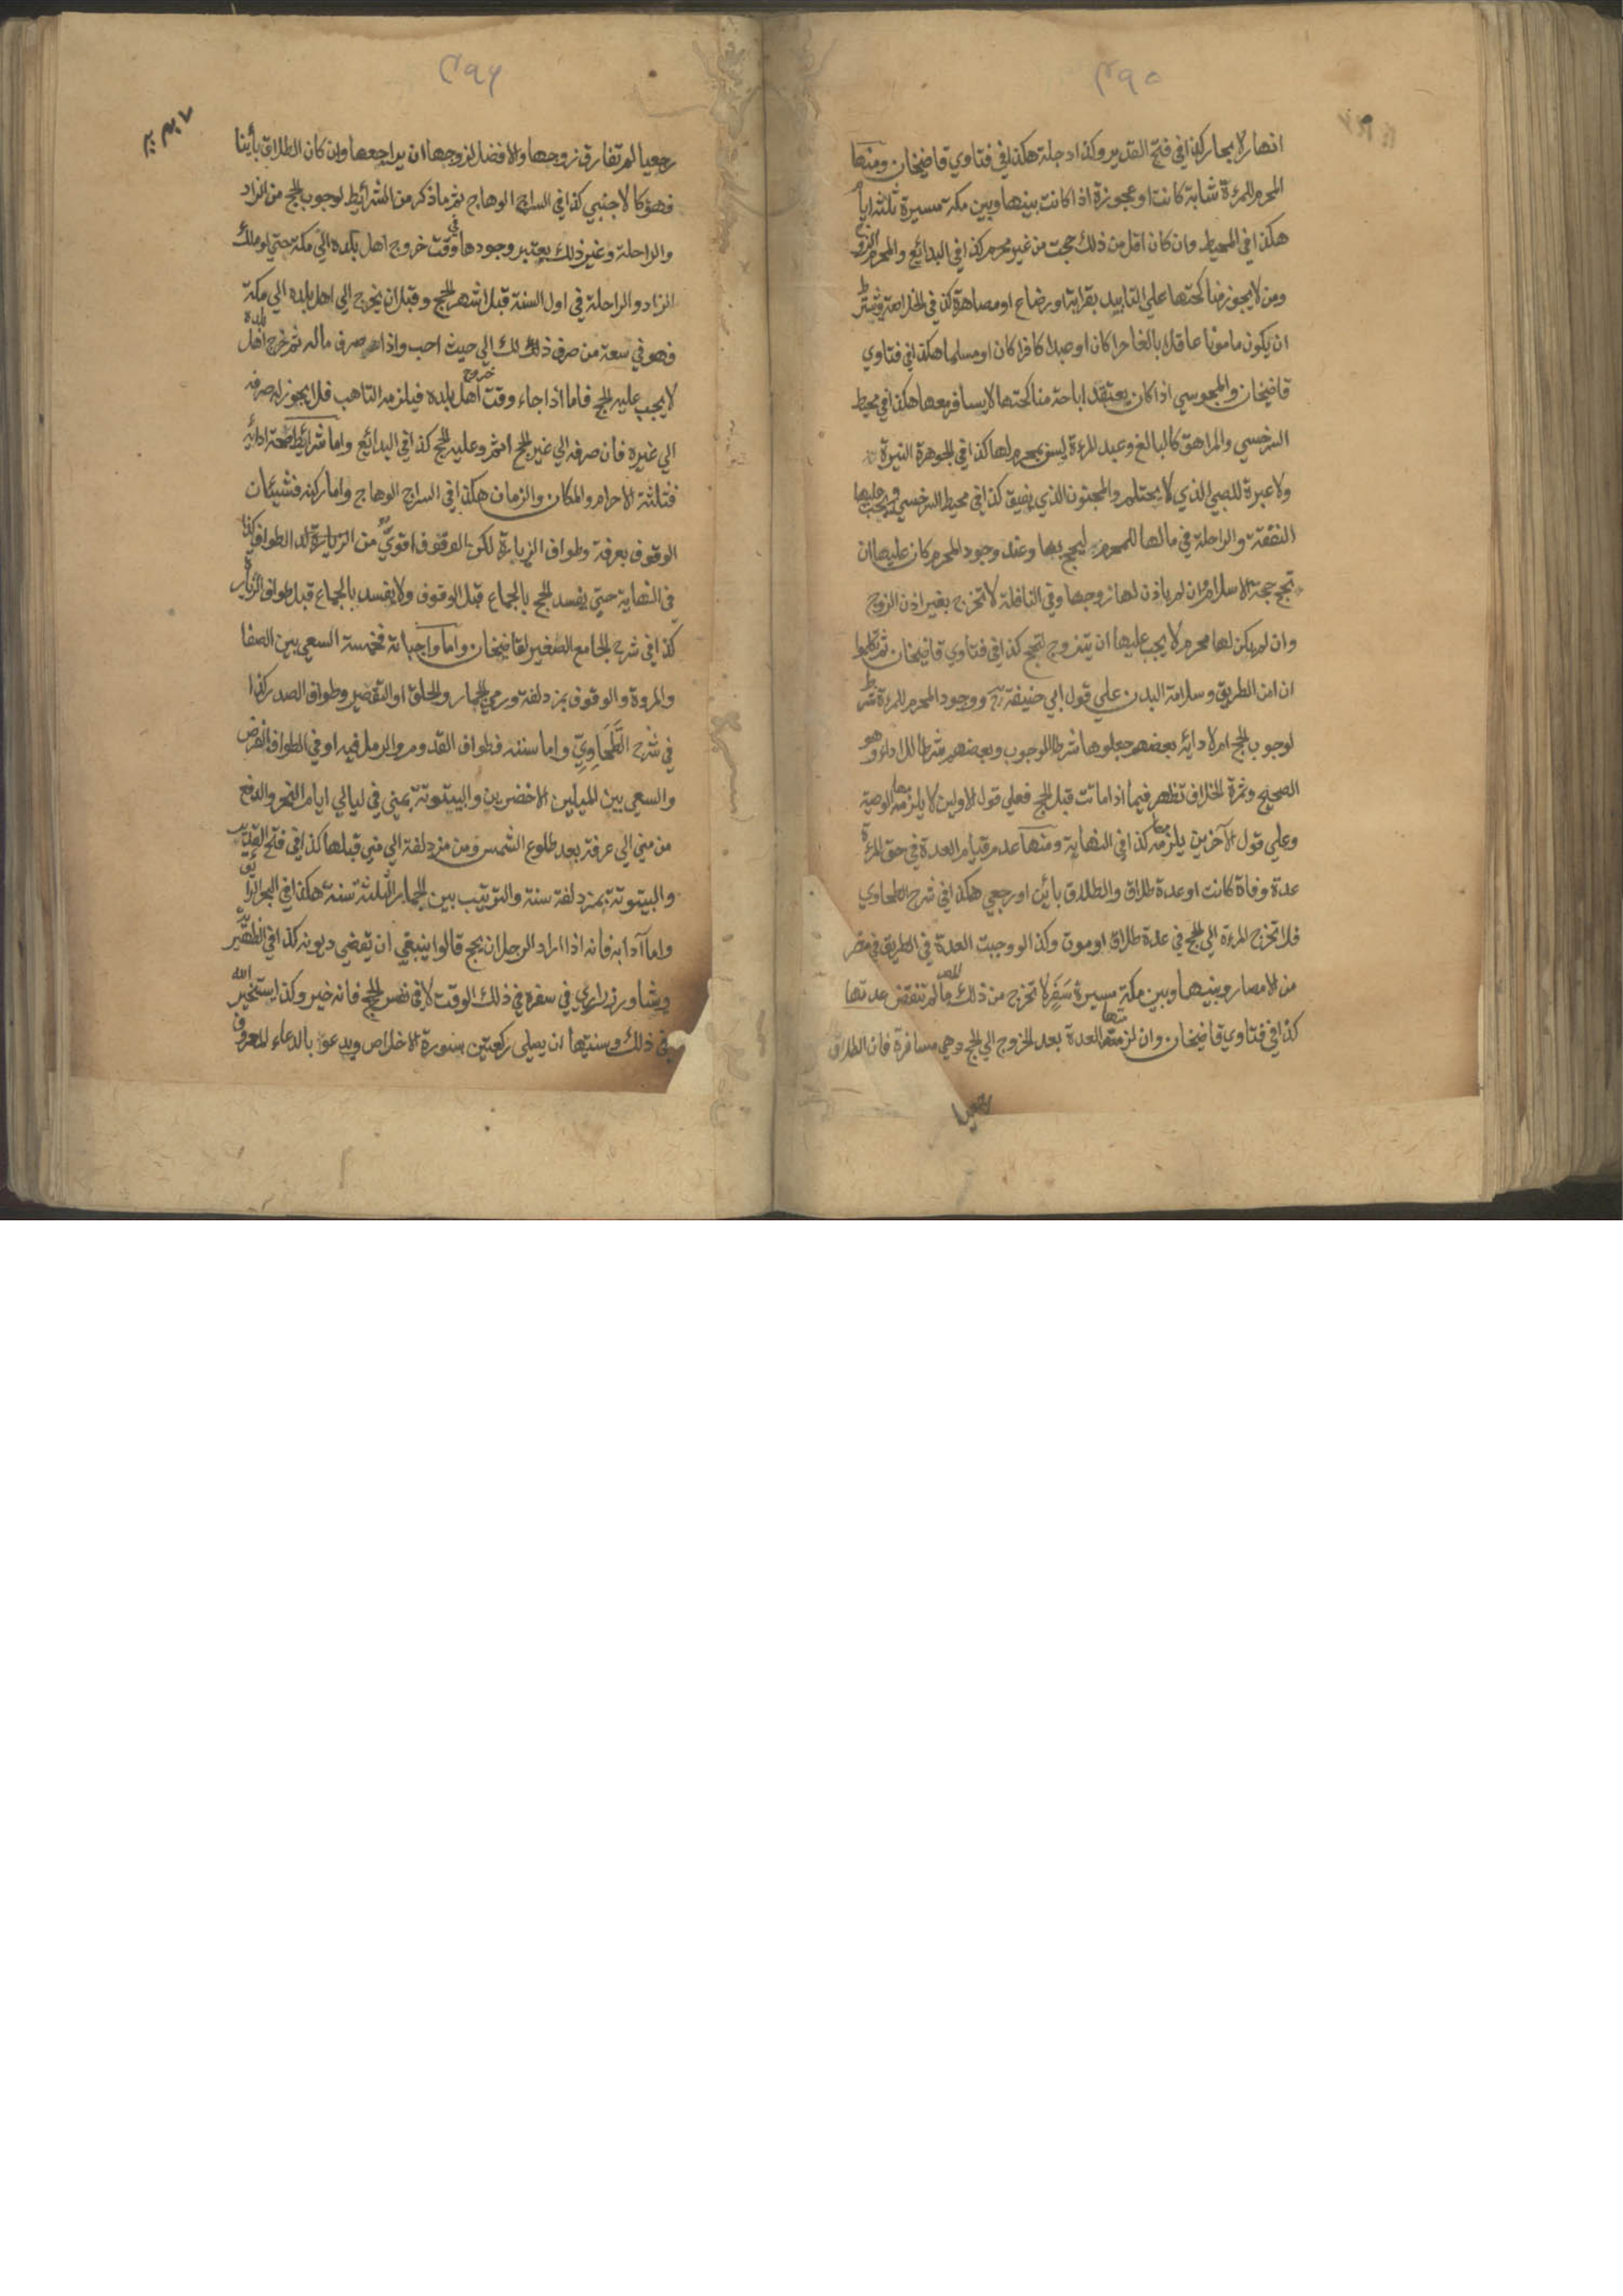 ۴۹۵
انهار لا بحار كذا في فتح القدير وكذا دجلة هكذا في فتاوي قاضيخان ومنها
المحرم للمرءة شابة كانت او عجوزة اذا كانت بينها وبين مكة مسيرة ثلثة ايام
هكذا في المحيط وان كان اقل من ذلك حجت من غير محرم كذا في البدائع والمحرم الزوج
ومن لا يجوز مناكحتها علي التابيد بقرابة او رضاع او مصاهرة كذا في الخلاصة ويشترط
ان يكون مامونا عاقلا بالغا حرا كان او عبدا كافرا كان او مسلما هكذا في فتاوي
قاضيخان والمجوسي اذا كان يعتقد اباحة مناكحتها لا يسافر معها هكذا في محيط
السرخسي والمراهق كالبالغ وعبد المرءة ليس بمحرم لها كذا في الجوهرة النيرة
ولا عبرة للصبي الذي لا يحتلم والمجنون الذي يفيق كذا في محيط السرخسي ويجب عليها
النفقة والراحلة في مالها للمحرم ليحج بها وعند وجود المحرم كان عليها ان
تحج حجة الاسلام وان لم ياذن لها زوجها وفي النافلة لا تخرج بغير اذن الزوج
وان لم يكن لها محرم لا يجب عليها ان يتزوج لتحج كذا في فتاوي قاضيخان ثم تكلموا
ان امن الطريق وسلامة البدن علي قول ابي حنيفة رح ووجود المحرم للمرءة شرط
لوجوب الحج ام لادائه بعضهم جعلوها شرطا للوجوب وبعضهم شرطا للاداء وهو
الصحيح وثمرة الخلاف تظهر فيما اذا ماتت قبل الحج فعلي قول الاولين لا يلزمها الوصية
وعلي قول الآخرين يلزمها كذا في النهاية ومنها عدم قيام العدة في حق المرءة
عدة وفاة كانت او عدة طلاق والطلاق بائن او رجعي هكذا في شرح الطحاوي
فلا تخرج المرءة الي الحج في عدة طلاق او موت وكذا لو وجبت العدة في الطريق في مصر
من الامصار وبينها وبين مكة مسيرة سفر لا تخرج من ذلك المصر ما لم تنقض عدتها
كذا في فتاوي قاضيخان وان لزمتها العدة بعد الخروج الي الحج وهي مسافرة فان الطلاق
رجعيا
۴۹۶
رجعيا لم تفارق زوجها والافضل لزوجها ان يراجعها وان كان الطلاق بائنا
فهو كالاجنبي كذا في السراج الوهاج ثم ما ذكر من الشرائط لوجوب الحج من الزاد
والراحلة وغير ذلك يعتبر وجودها في وقت خروج اهل بلده الي مكة حتي لو ملك
الزاد والراحلة في اول السنة قبل اشهر الحج وقبل ان يخرج الي اهل بلده الي مكة
فهو في سعة من صرف ذلك لك الي حيث احب واذا صرف ماله ثم خرج اهل بلده
لا يجب عليه الحج فاما اذا جاء وقت خروج اهل بلده فيلزمه التاهب فلا يجوز له صرفه
الي غيره فان صرفه الي غير الحج اثم وعليه الحج كذا في البدائع واما شرائط صحة ادائه
فثلثة الاحرام والمكان والزمان هكذا في السراج الوهاج واما ركنه فشيئان
الوقوف بعرفة وطواف الزيارة لكن الوقوف اقوي من الزيارة الطواف كذا
في النهاية حتي يفسد الحج بالجماع قبل الوقوف ولا يفسد بالجماع قبل طواف الزيارة
كذا في شرح الجامع الصغير لقاضيخان واما واجباته فخمسة السعي بين الصفا
والمروة والوقوف بمزدلفة ورمي الجمار والحلق او التقصير وطواف الصدر كذا
في شرح الطحاوي واما سننه فطواف القدوم والرمل فيه او في الطواف الفرض
والسعي بين الميلين الاخضرين والبيتوتة بمني في ليالي ايام النحر والدفع
من مني الي عرفة بعد طلوع الشمس ومن مزدلفة الي مني قبلها كذا في فتح القدير
والبيتوتة بمزدلفة سنة والترتيب بين الجمار الثلثة سنة هكذا في البحر الرائق
واما آدابه فانه اذا اراد الرجل ان يحج قالوا ينبغي ان يقضي ديونه كذا في الظهيرية
ويشاور ذا راي في سفره في ذلك الوقت لا في نفس الحج فانه خير وكذا يستخير الله
في ذلك وسنتها ان يصلي ركعتين بسورة الاخلاص ويدعو بالدعاء المعروف